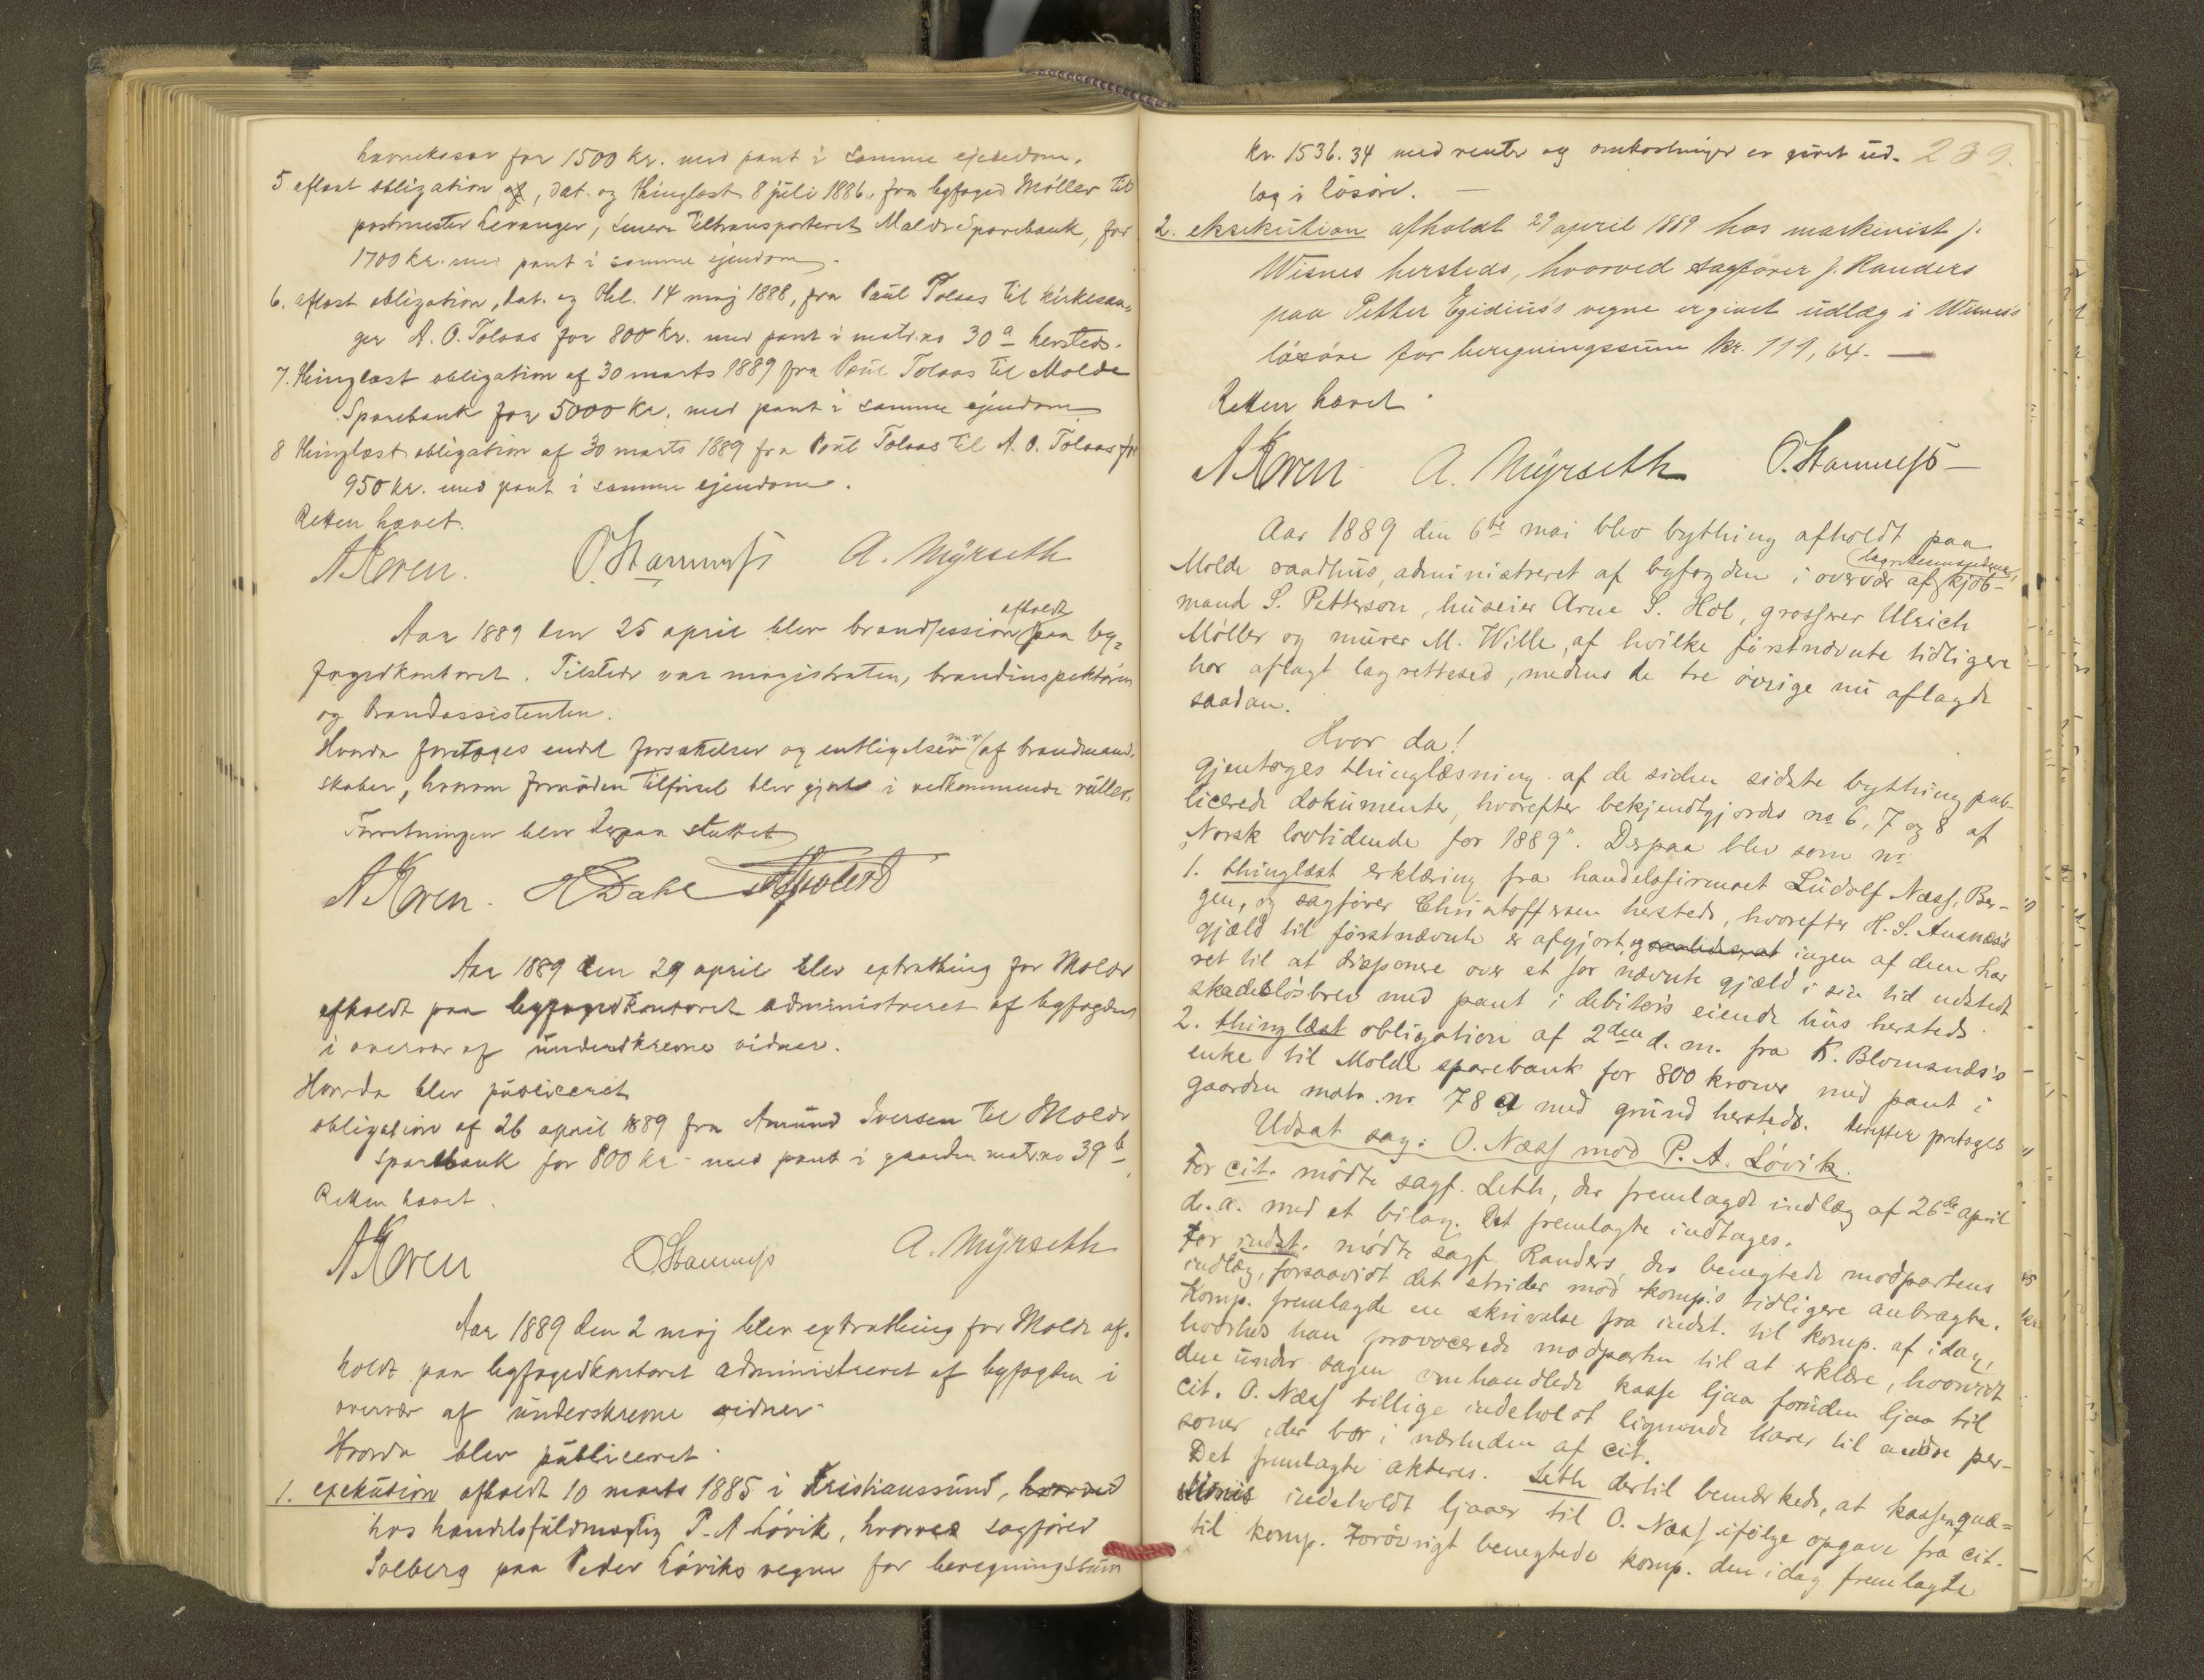 havnekassar for 1500 kr. med pant i samme ejendom.
5 aflæst obligation af, dat. og thinglæst 8 juli 1886, fra byfoged Møller til
postmester Levanger, senere tiltransporteret Molde Sparebank, for
1700 kr. med pant i samme ejendom.
6. aflæst obligation, dat. og thl. 14 maj 1888, fra Paul Tolaas til kirkesan-
ger A. O. Tolaas for 800 kr. med pant i matr.no 30a hersteds.
7. thinglæst obligation af 30 marts 1889 fra Paul Tolaas til Molde
Sparebank for 5000 kr. med pant i samme ejendom
8 thinglæst obligation af 30 marts 1889 fra Paul Tolaas til A. O. Tolaas for
950 kr. med pant i samme ejendom.
Retten hævet.
A Koren. O. Stamnes A. Myrseth
Aar 1889 den 25 april blev brandsession afholdt paa by-
fogedkontoret. Tilstede var magistraten, brandinspektøren
og brandassistenten.
Hvorda foretoges endel forsættelser og entligelser m.v. af brandmand-
skaber, hvorom fornøden tilførsel blev gjort i vedkommende ruller.
Forretningen blev derpaa sluttet
A Koren. H Dahl
Aar 1889 den 29 april blev extrathing for Molde
afholdt paa byfogedkontoret administreret af byfogden
i overvær af underskrevne vidner.
Hvorda blev publiceret
obligation af 26 april 1889 fra Amund Iversen til Molde
Sparebank for 800 kr. med pant i gaarden matr.no 39b
Retten hævet.
A Koren O. Stamnes A. Myrseth
Aar 1889 den 2 maj blev extrathing for Molde af-
holdt paa byfogedkontoret administreret af byfogden i
overvær af underskrevne vidner.
Hvorda blev publiceret.
1. exekution afholdt 10 marts 1885 i Kristianssund, hvorved
hos handelsfuldmægtig P. A Løvik, hvorved sagfører
Solberg paa Peder Løviks vegne for beregningssum
239.
kr. 1536.34 med renter og omkostninger er givet ud-
læg i løsøre. —
2. eksekution afholdt 29 april 1889 hos maskinist J.
Wisnes hersteds, hvorved sagfører J. Randers
paa Petter Egidius's vegne er givet udlæg i Wisnes's
løsøre for beregningssum kr. 111,64. —
Retten hævet.
A Koren A. Myrseth O. Stamnes —
Aar 1889 den 6te mai blev bything afholdt paa
Molde raadhus, administreret af byfogden i overvær af lagrettesmændene, kjøb-
mand S. Petterson, huseier Arne S. Hol, grosserer Ulrich
Møller og murer M. Wille, af hvilke førstnævnte tidligere
har aflagt lagrettesed, medens de tre øvrige nu aflagde
saadan.
Hvor da!
gjentoges thinglæsning af de siden sidste bything pub-
licerede dokumenter, hvorefter bekjendtgjordes no 6, 7 og 8 af
"Norsk lovtidende for 1889". Derpaa blev som nr
1. thinglæst erklæring fra handelsfirmaet Ludolf Næss, Ber-
gen, og sagfører Christoffersen hersteds, hvorefter H. S. Ausnæs's
gjæld til førstnævnte er afgjort, og saaledes at ingen af dem har
ret til at disponere over et for nævnte gjæld i sin tid udstedt
skadesløsbrev med pant i debitors eiende hus hersteds.
2. thinglæst obligation af 2den d. m. fra K. Blomsnæs's
enke til Molde sparebank for 800 kroner med pant i
gaarden matr. nr. 78a med grund hersteds. Derefter foretoges
Udsat sag: O. Næss mod P. A. Løvik.
For cit. mødte sagf. Leth, der fremlagde indlæg af 26de april
d. a. med et bilag. Det fremlagte indtages.
For indst. mødte sagf. Randers, der benegtede modpartens
indlæg, forsaavidt det strider mod komp.s tidligere anbragte.
Komp. fremlagde en skrivelse fra indst. til komp. af idag,
hvorhos han provocerede modparten til at erklære, hvorvidt
den under sagen omhandlede kasse ljaa foruden ljaa til
cit. O. Næss tillige indeholdt lignende varer til andre per-
soner, der bor i nærheden af cit.
Det fremlagte akteres. Leth dertil bemærkede, at kassen quæ-
stionis indeholdt ljaaer til O. Næss ifølge opgave fra cit.
til komp. Forøvrigt benegtede komp. den idag fremlagte